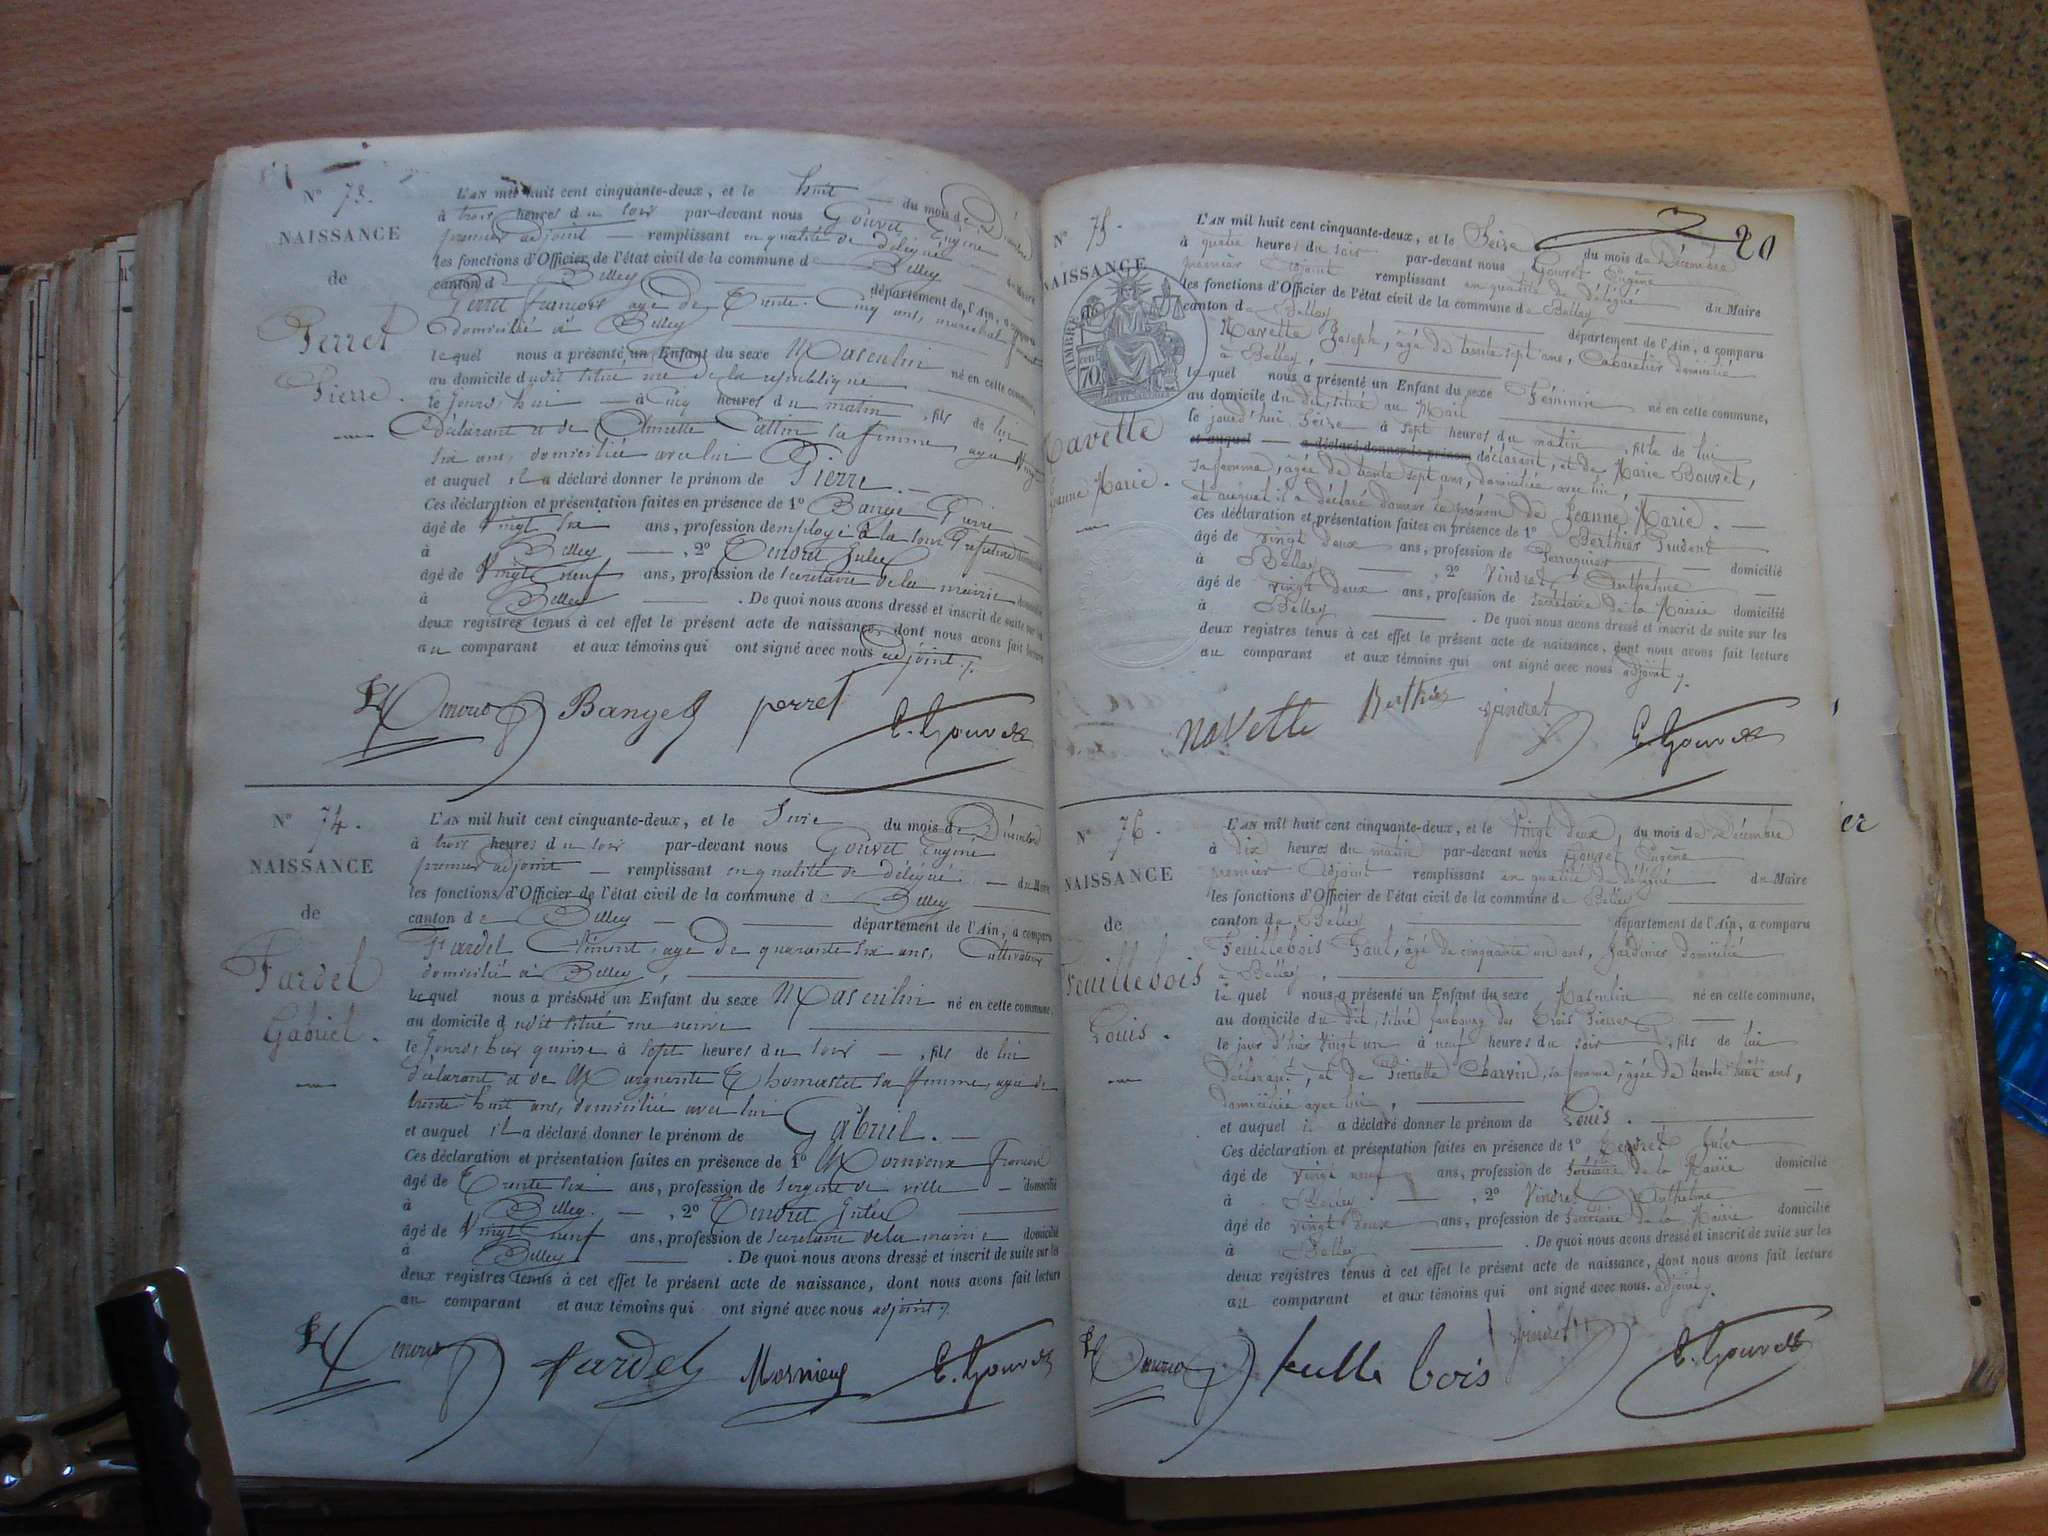 N° 73.
NAISSANCE
de
Perret
Pierre.
L'AN mil huit cent cinquante-deux, et le huit du mois de Décembre
à trois heures du soir par-devant nous Gouvet Eugène
premier adjoint remplissant en qualité de délégué du Maire
les fonctions d'Officier de l'état civil de la commune de Belley
canton de Belley département de l'Ain, a comparu
Perret François age de trente-cinq ans, marechal ferrant
domicilié à Belley
lequel nous a présenté un Enfant du sexe Masculin né en cette commune,
au domicile dudit situé rue de la republique
le jourd'hui à cinq heures du matin, fils de lui
déclarant et de sa femme, agée vingt
six ans, domiciliée avec lui
et auquel il a déclaré donner le prénom de Pierre.
Ces déclaration et présentation faites en présence de 1° Pierre
âgé de vingt six ans, profession d'employé à la Sous Prefecture domicilié
à Belley, 2° Tendret Jules
âgé de Vingt neuf ans, profession de secretaire de la mairie domicilié
à Belley. De quoi nous avons dressé et inscrit de suite sur les
deux registres tenus à cet effet le présent acte de naissance, dont nous avons fait lecture
au comparant et aux témoins qui ont signé avec nous adjoint.
perret E. Gouvet
N° 74.
NAISSANCE
de
Fardel
Gabriel.
L'AN mil huit cent cinquante-deux, et le Seize du mois de Décembre
à trois heures du soir par-devant nous Gouvet Eugène
premier adjoint remplissant en qualité de délégué. du Maire
les fonctions d'Officier de l'état civil de la commune de Belley
canton de Belley département de l'Ain, a comparu
Fardel Clément, age de quarante six ans, Cultivateur
domicilié à Belley,
lequel nous a présenté un Enfant du sexe Masculin né en cette commune,
au domicile dudit situé rue neuve
le jourd'hier quinze à sept heures du soir, fils de lui
déclarant et de Marguerite Thomasset sa femme, agée de
trente huit ans, domiciliée avec lui
et auquel il a déclaré donner le prénom de Gabriel.
Ces déclaration et présentation faites en présence de 1° Mornieux François
âgé de Trente six ans, profession de sergent de ville domicilié
à Belley. , 2° Tendret Jules
âgé de Vingt neuf ans, profession de secretaire de la mairie domicilié
à Belley. De quoi nous avons dressé et inscrit de suite sur les
deux registres tenus à cet effet le présent acte de naissance, dont nous avons fait lecture
au comparant et aux témoins qui ont signé avec nous adjoint.
Fardel Mornieux E. Gouvet
20
N° 75.
NAISSANCE
de
TIMBRE
70 cent
Navette
Jeanne Marie.
L'AN mil huit cent cinquante-deux, et le Seize du mois de Décembre
à quatre heures du soir par-devant nous Gouvet Eugène
premier Adjoint remplissant en qualité de délégué du Maire
les fonctions d'Officier de l'état civil de la commune de Belley
canton de Belley département de l'Ain, a comparu
Navette Joseph, âgé de trente sept ans, Cabaretier domicilié
à Belley,
lequel nous a présenté un Enfant du sexe Féminin né en cette commune,
au domicile du dit, situé au Mail
le jourd'hui Seize à sept heures du matin, fille de lui
et auquel a déclaré donner le prénom déclarant, et de Marie Bouvet,
sa femme, âgée de trente sept ans, domiciliée avec lui,
et auquel il a déclaré donner le prénom de Jeanne Marie.
Ces déclaration et présentation faites en présence de 1° Berthier Prudent
âgé de vingt deux ans, profession de Perruquier domicilié
à Belley, 2° Vindret Anthelme
âgé de vingt deux ans, profession de Secrétaire de la Mairie domicilié
à Belley. De quoi nous avons dressé et inscrit de suite sur les
deux registres tenus à cet effet le présent acte de naissance, dont nous avons fait lecture
au comparant et aux témoins qui ont signé avec nous adjoint.
navette Berthier Vindret E. Gouvet
N° 76.
NAISSANCE
de
Feuillebois
Louis.
L'AN mil huit cent cinquante-deux, et le Vingt deux, du mois de Décembre
à dix heures du matin par-devant nous Gouvet Eugène
premier Adjoint remplissant en qualité de délégué du Maire
les fonctions d'Officier de l'état civil de la commune de Belley
canton de Belley département de l'Ain, a comparu
Feuillebois Paul, âgé de cinquante un ans, Jardinier domicilié
à Belley
lequel nous a présenté un Enfant du sexe Masculin né en cette commune,
au domicile du dit, situé faubourg des Trois Pierres
le jour d'hier vingt un à neuf heures du soir, fils de lui
déclarant, et de Pierrette Charvin, sa femme, âgée de trente huit ans,
domiciliée avec lui,
et auquel il a déclaré donner le prénom de Louis.
Ces déclaration et présentation faites en présence de 1° Tendret Jules
âgé de vingt neuf ans, profession de Secrétaire de la Mairie domicilié
à Belley, 2° Vindret Anthelme
âgé de vingt deux ans, profession de Secrétaire de la Mairie domicilié
à Belley. De quoi nous avons dressé et inscrit de suite sur les
deux registres tenus à cet effet le présent acte de naissance, dont nous avons fait lecture
au comparant et aux témoins qui ont signé avec nous. adjoint.
feuille bois Vindret E. Gouvet
er